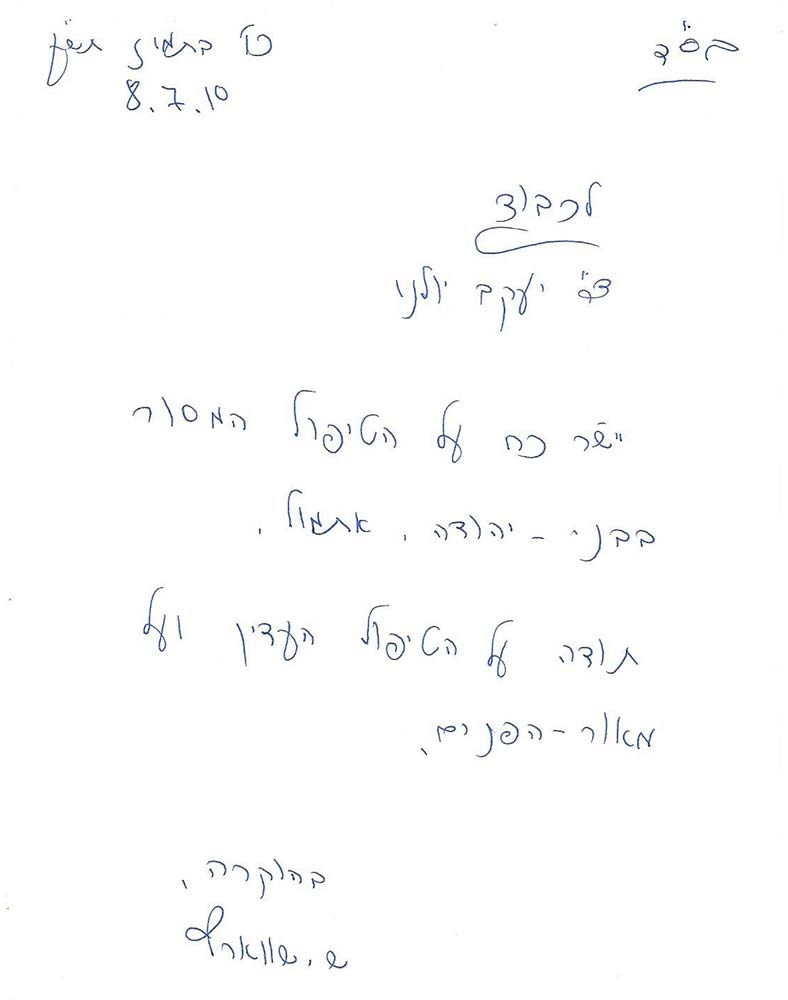 בס"ד
כו' בתמוז תש"ע
8.7.10
לכבוד
ד"ר יעקב
יישר כח על הטיפול המסור
בבני - יהודה, אתמול.
תודה על הטיפול העדין ועל
מאור-הפנים.
בהוקרה,
ש. שווארץ